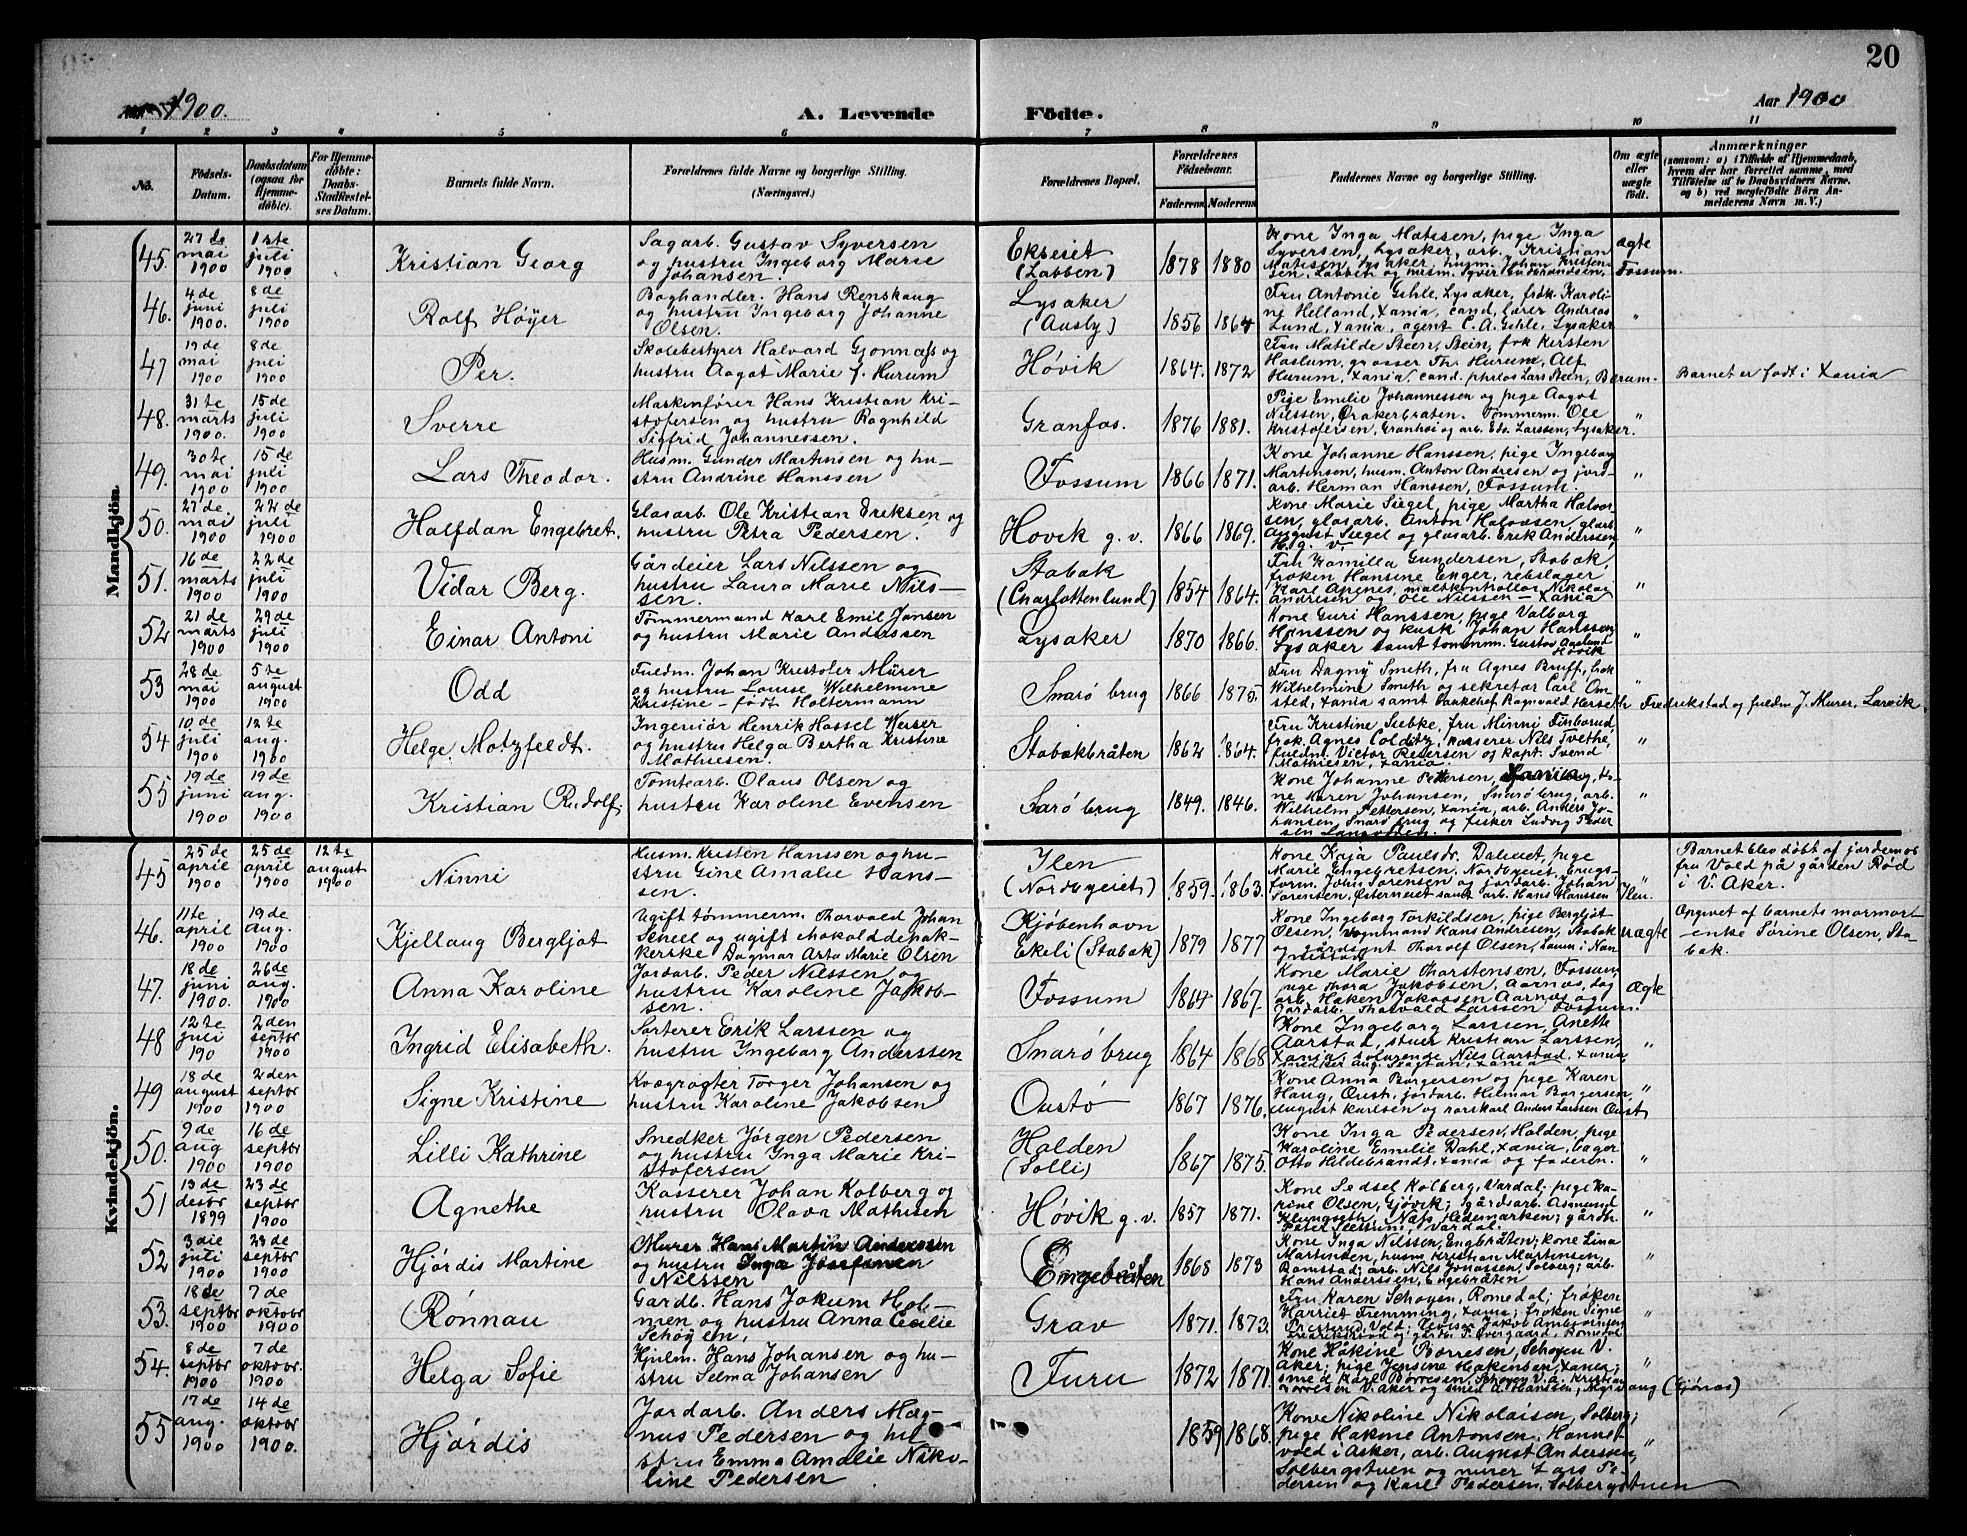 20
Aar 1900.
A. Levende Födte.
Aar 1900
1 2 3 4 5 6 7 8 9 10 11
No.
Födsels-Datum.
Daabsdatum (ogsaa for Hjemme-döbte).
For Hjemme-döbte: Daabs-Stadfæstel-ses Datum.
Barnets fulde Navn.
Forældrenes fulde Navne og borgerlige Stilling. (Næringsvei.)
Forældrenes Bopæl.
Forældrenes Födselsaar.
Faderens. Moderens.
Faddernes Navne og borgerlige Stilling.
Om ægte eller uægte født.
Anmærkninger
(saasom: a) i Tilfælde af Hjemmedaab, hvem der har forrettet samme, med Tilföielse af to Daabsvidners Navne, og b) ved uægtefödte Börn An-melderens Navn m. V.)
Mandkjön.
45. 27 de mai 1900 1ste juli 1900 Kristian Georg
Sagarb. Gustav Syversen
og hustru Ingeborg Marie
Johansen.
Ekseiet (Labben) 1878 1880
Kone Inga Matisen, pige Inga
Syversen, Lysaker, arb. Kristian
ægte
46. 4 de juni 1900. 8 de juli 1900 Rolf Høyer
Boghandler. Hans Renskaug
og hustru Ingeborg Johanne
Olsen.
Lysaker (Ausby) 1856 1864
Fru Antonie Gihle, Lysaker, frøk. Karoli-
ne Helland, Xania, cand. lærer Andreas
Lund, Xania, agent C. A. Gihle, Lysaker "
47 19 de mai 1900 8 de juli 1900 Per.
Skolebestyrer Halvard Gjønnæs og
hustru Aagot Marie f. Hurum
Høvik 1864. 1872
Fru Matilde Steen, Stein, frøk Kersten
Haslum, grosser Th. Hurum, Alf
Hurum, Xania, cand. philos Lars Steen, Berum.
Barnet er født i Xania
48. 31 te marts 1900. 15 de juli 1900 Sverre
Maskinfører Hans Kristian Kri-
stofersen og hustru Ragnhild
Sigfrid Johannessen.
Granfos. 1876 1881.
Pige Emilie Johannessen og pige Aagot
Nilssen, Ørakerbraten. Tømmerm. Ole
Kristofersen, Granhøi og arb. Edv. Larssen, Lysaker. "
49. 30 te mai 1900 15 de juli 1900 Lars Theodor.
Husm. Gunder Martinsen og hu-
stru Andrine Hanssen
Fossum 1866 1871.
Kone Johanne Hanssen, pige Ingeborg
Martinsen, husm. Anton Andresen og jord-
arb. Herman Hanssen, Fossum. "
50. 27 de. mai 1900 22 de juli 1900 Halfdan Engebret.
Glasarb. Ole Kristian Eriksen og
hustru Petra Pedersen.
Høvik g. v. 1866 1869.
Kone Marie Siegel, pige Martha Halvor-
sen, glasarb. Anton Halvorsen, glarb.
August Siegel og glasarb. Erik Anderssen,
H. g. v. "
51. 16 de marts 1900 22 de juli 1900 Vidar Berg.
Gårdeier Lars Nilssen og
hustru Laura Marie Nils-
sen.
Stabæk (Charlottenlund) 1854 1864.
Fru Kamilla Gundersen, Stabæk,
frøken Hansine Enger, rebslager
Karl Agnes, maltkontrollør Nikolai
Andresen og Ole Nilssen – Xania "
52 21 de marts 1900 29 de juli 1900 Einar Antoni
Tømmermand Karl Emil Jansen
og hustru Marie Anderssen
Lysaker 1870 1866.
Kone Guri Hanssen, pige Valborg
Hanssen og kusk Johan Hanssen
Lysaker samt tømmerm. Gustav
Høvik "
53 28 de mai 1900 5 te august 1900 Odd
Fuldm. Johan Kristofer Mürer
og hustru Louise Wilhelmine
Kristine – født Holtermann
Snarø brug 1866 1875
Fru Dagny Smith, fru Agnes Bruff, frøk
Wilhelmine Smeth og sekretær Carl Om-
sted, Xania samt Ragnvald Herseth Fredrikstad og fuldm J. Mürer, Larvik. "
54 10 de juli 1900 12 te aug. 1900 Helge Motzfeldt.
Ingeniør Henrik Hassel
og hustru Helga Bertha Kristine
Mathiesen.
Stabækbråten 1862 1864.
Fru Kristine Seebke, fru Minni
frøk. Agnes Colditz, kasserer Nils Tvethe,
fuldm. Victor Pedersen og kapt. Svend
Mathiesen, Xania. "
55 19 de juni 1900 19 de aug. 1900 Kristian Rudolf
Tomtearb. Olaus Olsen og
hustru Karoline Evensen
Snarö brug 1849. 1846.
Kone Johanne Pettersen, ko-
ne Karen Johansen, Snarö brug, arb.
Wilhelm Pettersen, Xania, arb. Anders Jo-
hansen, Snarö brug og fisker Ludvig Peder-
sen "
Kvindekjön.
45 25 de april 1900 25 de april 1900 12 te august 1900 Ninni
Husm. Kristen Hanssen og hu-
stru Gine Amalie Hans-
sen.
Ilen (Nordbyeiet) 1859. 1863.
Kone Kaja Paulsdr. Daleiet, pige
Marie Engebretsen, Nordbyeiet, brugs-
form. Johs. Sørensen og jordarb. Johan
Sørensen, Østerneiet samt arb. Hans Hanssen Ilen. "
Barnet blev døbt af jordemor
fru Vold på gården Rød
i V. Aker.
46. 11 te april 1900 19 de aug. 1900 Kjellaug Bergljot
Ugift tømmerm. Thorvald Johan
Scheel og ugift chokoladepak-
kerske Dagmar Asta Marie Olsen
Kjøbenhavn Ekeli (Stabæk) 1879 1877
Kone Ingeborg Torkildsen, pige Bergljot
Olsen, vognmand Hans Andresen, Stabæk
uægte
Opgivet af barnets mormor
enke Sørine Olsen, Sta-
bæk.
47. 18 de juni 1900. 26 de aug. 1900 Anna Karoline
Jordarb. Peder Nilssen og
hustru Karoline Jakob-
sen.
Fossum 1864 1867.
Kone Marie Thorstensen, Fossum,
pige Thora Jakobsen, Aarnæs, Sag-
arb. Haken Jakobsen Aarnæs og
Jordarb. Thorvald Larssen Fossum.
Ægte
48 12 te juli 190 2 den septbr 1900 Ingrid Elisabeth.
Sorterer Erik Larssen og
hustru Ingeborg Anderssen
Snarö brug 1864 1868
Kone Ingeborg Larssen, Anethe
Aarstad, stuer Kristian Larssen,
Xania, søfarende Nils Aarstad, Xania "
49 18 de august 1900 2 den septbr 1900 Signe Kristine
Kvægrøgter Torger Johansen og
hustru Karoline Jakobsen
Oustø 1867 1876.
Kone Anna Borgersen og pige Karen
Haug, Oust, jordarb. Hilmar Borgersen,
August Karlsen og rorskarl Anders Larssen Oust "
50. 9 de aug 1900 16 de septbr 1900 Lilli Kathrine
Snedker Jörgen Pedersen
og hustru Inga Marie Kri-
stofersen
Holden (Solli) 1867 1875.
Kone Inga Pedersen, Holden, pige
Karoline Emilie Dahl, Xania, bager
Otto Hildebrandt, Xania og faderen. "
51 13 de desbr 1899 23 de septbr 1900 Agnethe
Kasserer Johan Kolberg og
hustru Olava Mathisen
Høvik g. v. 1857 1871.
Kone Sidsel Kolberg, Vardal; pige Ka-
rine Olsen, Gjøvik; gårdsarb. Asmund
Klungseth, Næs Hedemarken; "
52 3 die juli 1900 23 de septbr 1900 Hjørdis Martine
Murer Hans Martin Anderssen
og hustru Inga Josefine
Nilssen
Engebråten 1868 1873
Kone Inga Nilssen, Engbråten; kone Lina
Martinsen, husm Kristian Martinsen,
Ramstad; arb. Nils Jonassen, Solberg; arb.
Hans Anderssen, Engebråten "
53. 18 de septbr 1900 7 de oktobr 1900 Rønnau
Gardb. Hans Jokum Hol-
men og hustru Anna Cecilie
Schøyen.
Grav 1871. 1873.
Fru Karen Schøyen, Romedal; frøken
Harriet Flemming, Xania; frøken Signe "
54. 8 de septbr 1900 7 de oktobr. 1900 Helga Sofie
Hjulm. Hans Johansen og hu-
stru Selma Johansen
Furu 1872 1871
Kone Hakine Børresen, Schøyen V.
Aker; pige Jensine Hakensen, Xania;
smed Karl Børresen, Schøyen V. a. Kristian
Børresen V. Aker og smed A. Hanssen, "
55 17 de aug. 1900 14 de oktobr 1900. Hjørdis
Jordarb. Anders Mag-
nus Pedersen og hu-
stru Emma Amalie Niko-
line Pedersen
1859 1868.
Kone Nikoline Nikolaisen, Solberg;
pige Hakine Antonsen, Honne-
vold i Asker, arb. August Anderssen,
Solbergstuen og murer Lars Pe-
dersen og Karl Pedersen, Solbergstuen "